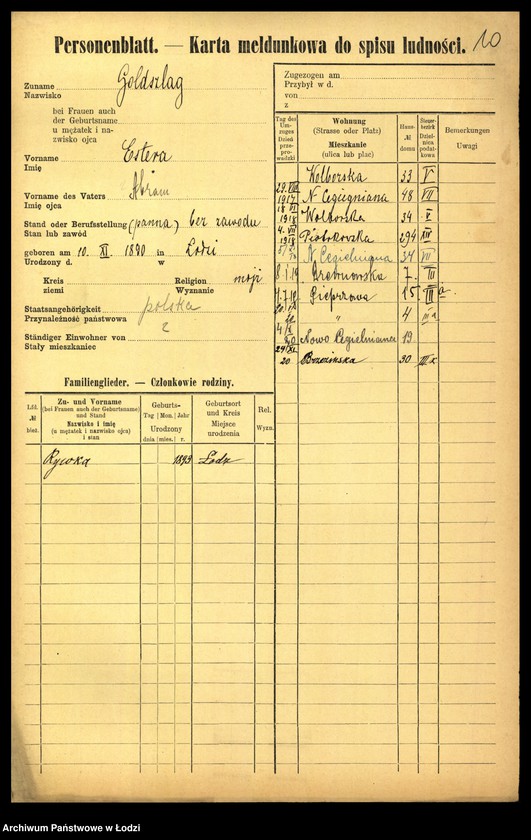 Personenblatt. — Karta meldunkowa do spisu ludności. 10
Zuname Goldszlag
Nazwisko
bei Frauen auch
der Geburtsname
u mężatek i na-
zwisko ojca
Vorname Estera
Imię
Vorname des Vaters Abram
Imię ojca
Stand oder Berufsstellung (panna) bez zawodu
Stan lub zawód
geboren am 10. XI. 1890 in Lodzi
Urodzony d. w
Kreis Religion mojż
ziemi Wyznanie
Staatsangehörigkeit polska
Przynależność państwowa
Ständiger Einwohner von
Stały mieszkaniec
Zugezogen am
Przybył w d.
von
z
Tag des Um-zuges Dzień przepro-wadzki
Wohnung
(Strasse oder Platz)
Mieszkanie
(ulica lub plac)
Haus-
№
domu
Steuer-bezirk Dzielnica podat-kowa
Bemerkungen
Uwagi
Wolborska 33 V
29. VIII 1917 N Cegielniana 48 VII
1918 Wolborska 34 V
4. VII 1918 Piotrkowska 294 XIV
N Cegielniana 34 VII
8 I 19 Drewnowska 7 III
Pieprzowa 15 III a
" 4 III a
Nowo Cegielniana 19
20 Brzezińska 30 III a
Familienglieder. — Członkowie rodziny.
Lfd.
№
bież.
Zu- und Vorname
(bei Frauen auch der Geburtsname)
und Stand
Nazwisko i imię
(u mężatek i nazwisko ojca)
i stan
Geburts-
Tag Mon. Jahr
Urodzony
dnia mies. r.
Geburtsort
und Kreis
Miejsce
urodzenia
Rel.
Wyzn.
Rywka 1893 Lodz
Archiwum Państwowe w Łodzi